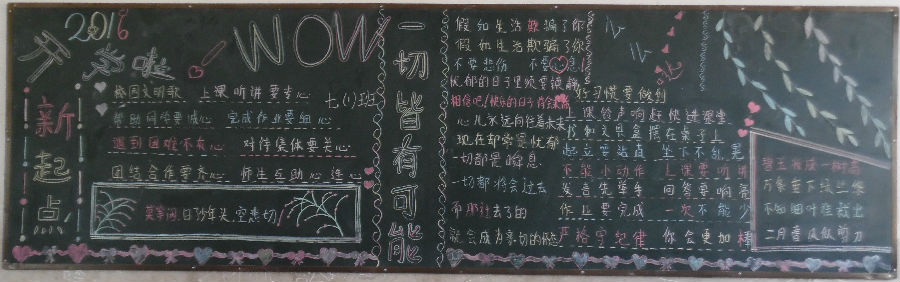 2016
开学啦
WOW
新起点
七(1)班
校园文明歌 上课听讲要专心
帮助同学要诚心 完成作业要细心
遇到困难不灰心 对待集体要关心
团结合作要齐心 师生互助心连心
莫等闲,白了少年头,空悲切!
一切皆有可能
假如生活欺骗了你
假如生活欺骗了你
不要悲伤 不要心急!
忧郁的日子里须要镇静
相信吧!快乐的日子将会来临
心儿永远向往着未来
现在却常是忧郁
一切都是瞬息
一切都将会过去
而那过去了的
就会成为亲切的怀恋
好习惯要做到
上课铃声响赶快进课堂
书和文具盒摆在桌子上
起立要站直 坐下不乱晃
不做小动作 上课要听讲
发言先举手 回答要响亮
作业要完成 一次不能少
严格守纪律 你会更加棒
碧玉妆成一树高
万条垂下绿丝绦
不知细叶谁裁出
二月春风似剪刀